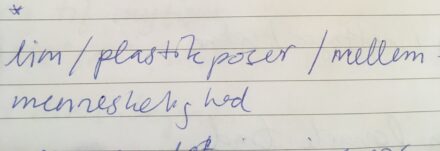 *
lim / plastikposer / mellem-
menneskelighed